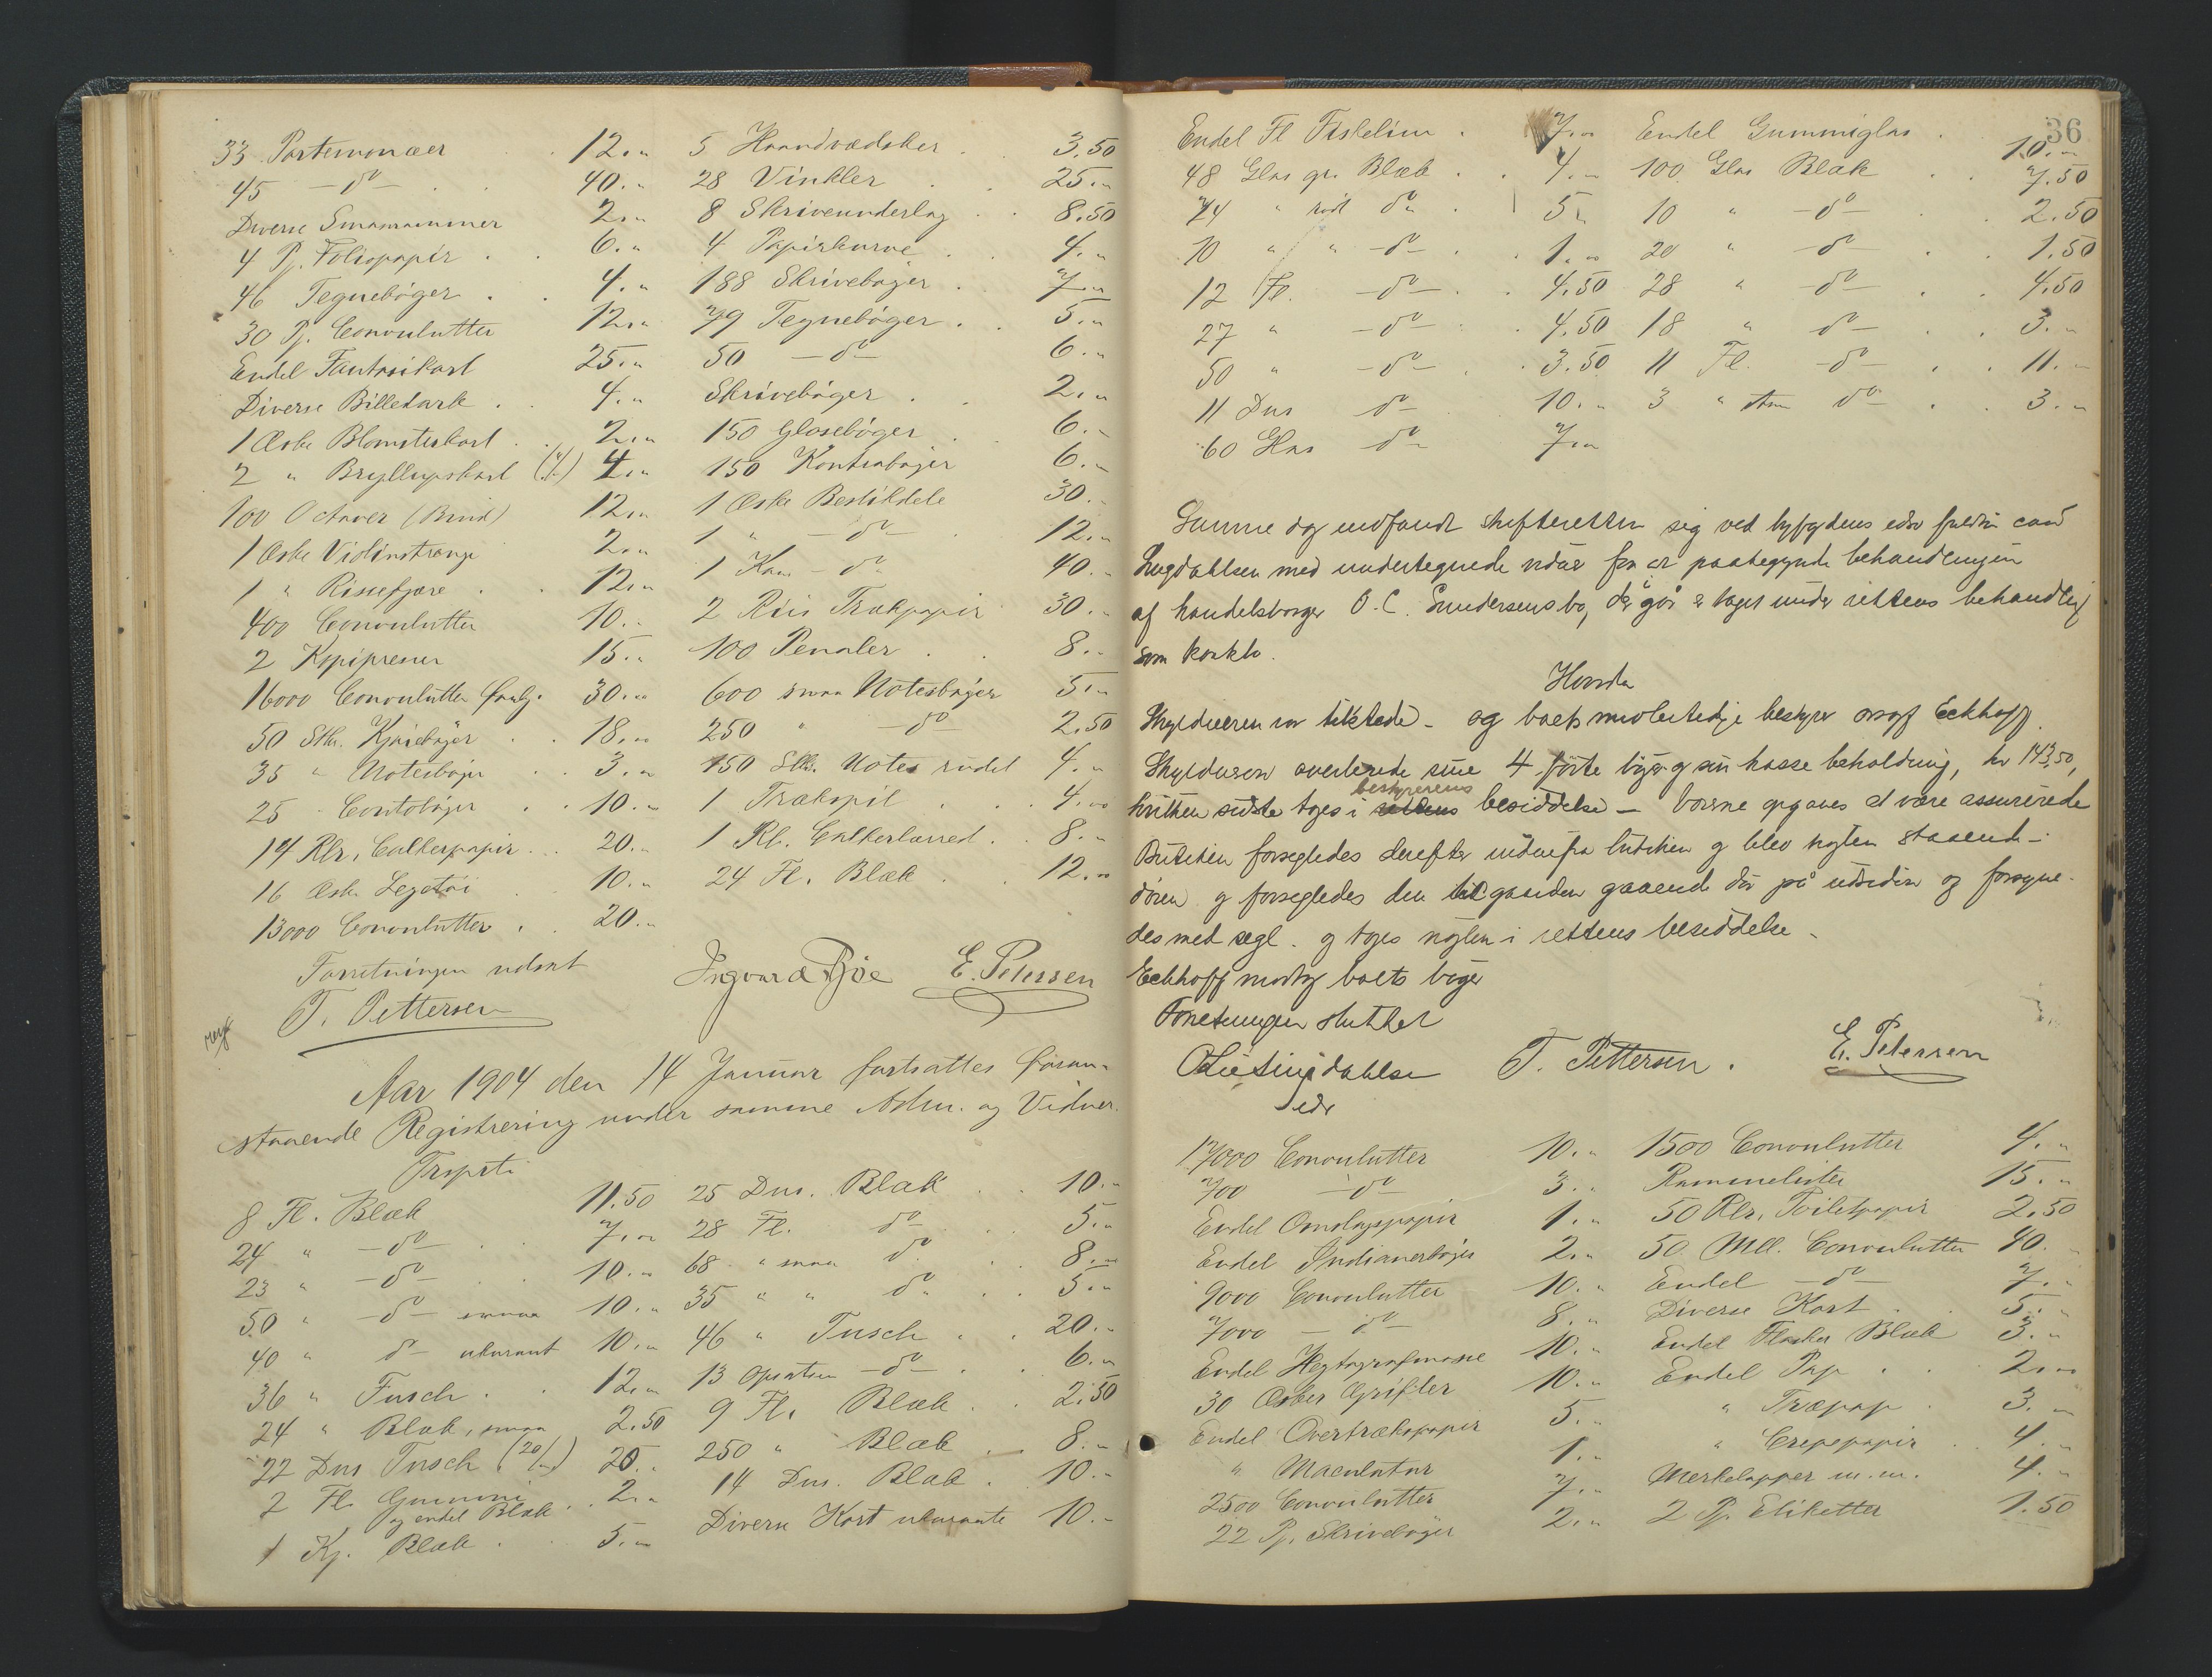 33 Portemonæer 12."
45 -do- 40."
Diverse Smaarammer 2."
4 Pj. Foliopapir 6."
46 Tegnebøger 4."
30 Pj. Convoulutter 12."
Endel Fantasikort 25."
Diverse Billedark 4."
1 Æske Blomsterkort 2."
2 " Bryllupskort 4."
100 Octaver (Bind) 12."
1 Æske Violinstrænge 2."
1 " Rissefjære 12."
400 Convoulutter 10."
2 Kopipresser 15."
16000 Convoulutter 30."
50 Stk. Kladebøger 18."
35 " Notesbøger 3."
25 Contobøger 10."
14 Rlr. Calkerpapir 20."
16 Æsk. Legetøi 10."
13000 Convoulutter 20."
5 Haandvædsker 3.50
28 Vinkler 25."
8 Skriveunderlag 8.50
4 Papirkurve 4."
188 Skrivebøger 7."
79 Tegnebøger 5."
50 -do- 6."
Skrivebøger 2."
150 Glosebøger 6."
150 Kontrabøger 6."
1 Æske Bestikdele 30."
1 " -do- 12."
1 Kas -do- 40."
2 Riis Trækpapir 30."
100 Penaler 8."
600 smaa Notesbøger 5."
250 " -do- 2.50
150 Stk. Notes rudet 4."
1 Trækspil 4."
1 Rl. Calkerlærred 8."
24 Fl. Blæk 12."
Forretningen udsat
T. Pettersen E. Petersen
Aar 1904 den 14 Januar fortsattes foran-
staaende Registrering under samme Adm. og Vidner.
8 Fl. Blæk 11.50
24 " -do- 7."
23 " -do- 10."
50 " -do- smaa 10."
40 " do- ukurant 10."
36 " Tusch 12."
24 " Blæk, smaa 2.50
22 Dus Tusch (20/-) 20."
2 Fl. Gummi
og endel Blæk 2."
1 Kj. Blæk 5."
25 Dus. Blæk 10."
28 Fl. do 5."
68 " smaa do 8."
35 " " do 5."
46 " Tusch 20."
13 -do- 6."
9 Fl. Blæk 2.50
250 " Blæk 8."
14 Dus. Blæk 10."
Diverse Kort ukurante 10."
36
Endel Fl Fiskelim 7."
48 Glas gr. Blæk 4."
24 " rød do 5."
10 " " -do- 1."
12 Fl. -do- 4.50
27 " -do- 4.50
50 " -do- 3.50
11 Dus do- 10."
60 Glas do- 7."
Endel Gummiglas 10."
100 Glas Blæk 7.50
10 " -do- 2.50
20 " -do- 1.50
28 " -do- 4.50
18 " do- 3."
11 Fl. -do- 11."
3 " do 3."
Samme dag indfandt skifteretten sig ved byfogdens
med undertegnede vidner for at paabegynde behandlingen
af handelsborger O.C. Gundersens bo, der igår er taget under rettens behandling
som konkbo.
Hvorda
Skyldneren var tilstede - og boets midlertidige bestyrer orsagf Eckhoff.
Skyldneren overleverede sine 4 førte bøger og sin kasse beholdning, kr 143,50,
hvilken sidste toges i bestyrerens besiddelse - varerne opgaves at være assurerede
Butiken forsegledes derefter indenfra butiken og blev nøglen staaende i
døren og forsegledes den til gaarden gaaende dør på udsiden og forsyne-
des med segl. og toges nøglen i rettens besiddelse -
Eckhoff modtog boets bøger
Forretningen sluttet
T. Pettersen. E. Petersen
17000 Convoulutter 10."
700 -do- 3."
Endel Omslagspapir 1."
Endel Indianerbøger 2."
9000 Convoulutter 10."
7000 - do- 8."
Endel Hektografmasse 10."
30 Æsker Grifler 10."
Endel Overtrækspapir 5."
" Maculatur 1."
2500 Convoulutter 7."
22 Pj. Skrivebøger 2."
1500 Convoulutter 4."
Rammelister 15."
50 Rlr. Toiletpapir 2.50
50 Mll. Convoulutter 40."
Endel -do- 7."
Diverse Kort 5."
Endel Flasker Blæk 3."
Endel Pap 2."
" Træpap 3."
" Crepepapir 4."
Merkelapper m.m. 4."
2 Pj. Etiketter 1.50